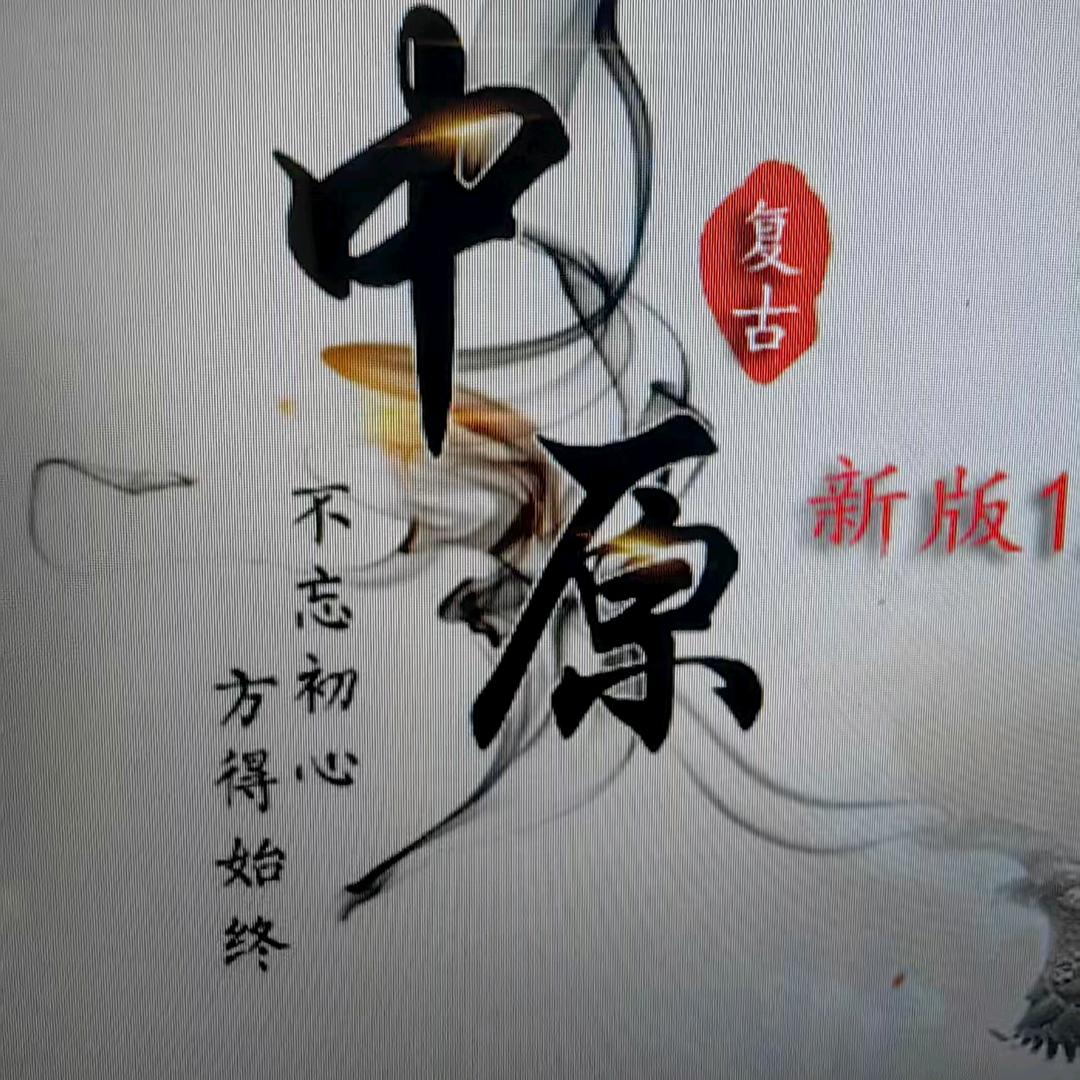 中原
复古
新版1
不忘初心
方得始终